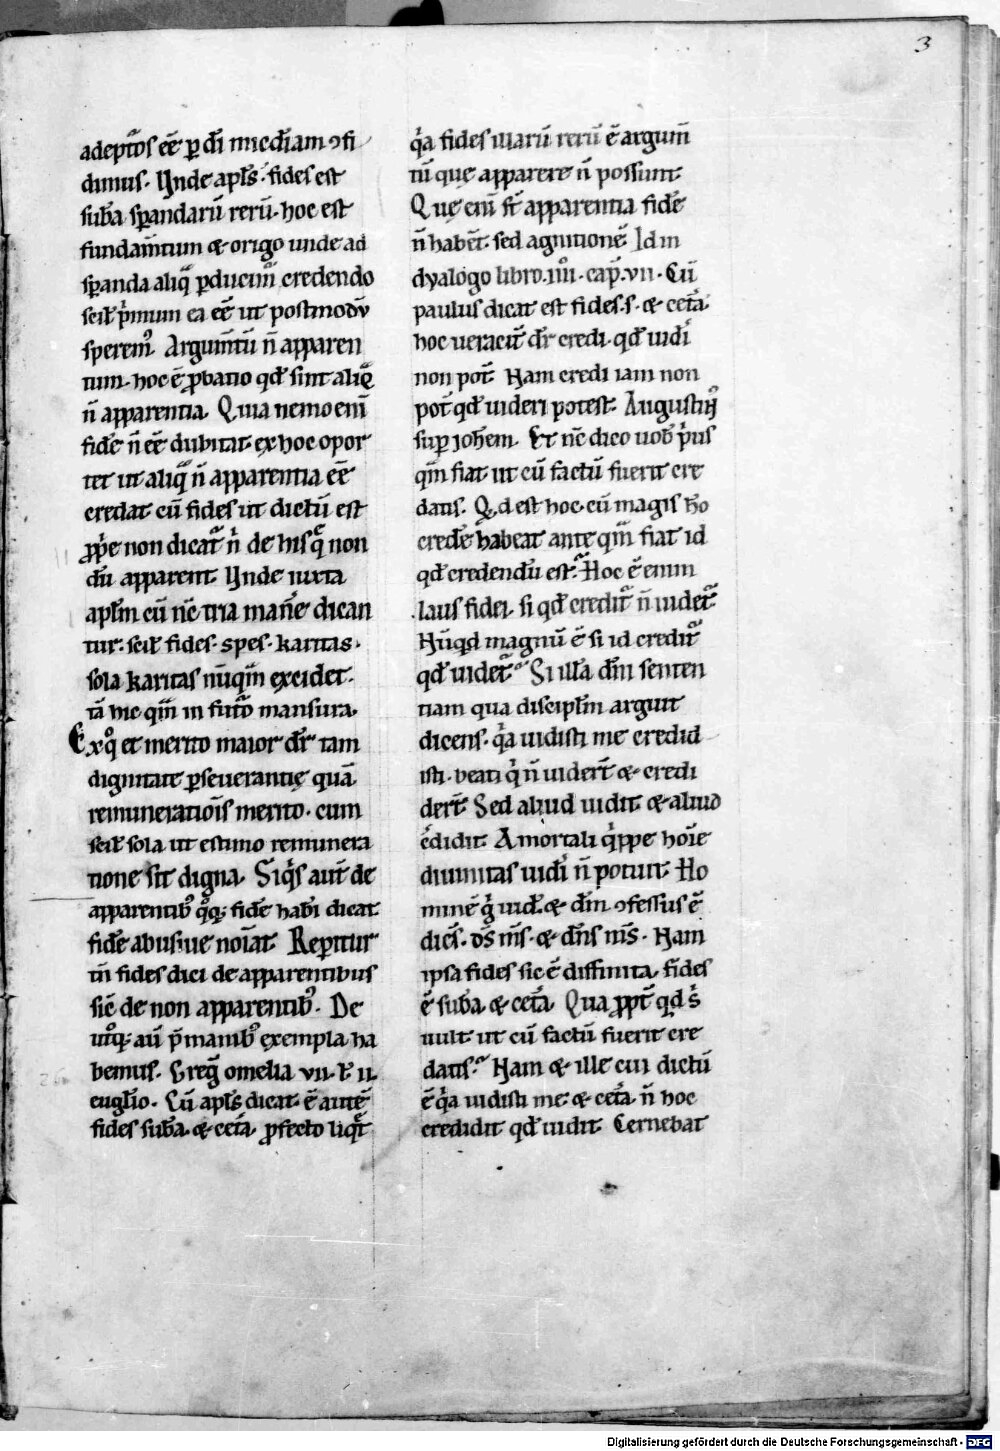 3
adeptos eē ꝑ dī mic̄diam ꝯfi
dimus. Vnde apl̄s. fides est
sub̄a sꝑandarū rerū. hoc est
fundam̄tum & origo unde ad
sꝑanda aliq̄ ꝑducim̄ credendo
scil̄ pͥmum ea eē ut postmodū
sperem᷒. Argum̄tū n̄ apparen
tum. hoc ē ꝓbatio qd̄ sint aliq̄
n̄ apparentia. Quia nemo eni̅
fidē n̄ eē dubitat. ex hoc opor
tet ut aliq̄ n̄ apparentia eē
credat. cū fides ut dictū est
ꝓpͥe non dicat᷑ nͥ de his q̄ non
dū apparent. Vnde iuxta
apl̄m cū nc̄ tria man̄e dican
tur. scil̄ fides. spes. karitas.
sola karitas nūq̄m excidet.
tā hic q̄m in fut᷑o mansura.
Exqͦ et merito maior dr̄ tam
dignitate ꝑseuerantię quā
remuneratiōis merito. cum
scil̄ sola ut estimo remunera
tione sit digna. Siqͥs aut̄ de
apparentib᷒ qͦꝗ; fidē hab̄i dicat
fidē abusiue noīat. Reꝑitur
tn̄ fides dici de apparentibus
sic̄ de non apparentib᷒. De
utͦq; aū p̄ manib᷒ exempla ha
bemus. Greḡ omelia vii. ł ii.
eugl̄io. Cū apl̄s dicat. ē autē
fides sub̄a. & cet̄a. ꝓfecto liq̄t
qͥa fides illarū rerū ē argum̄
tū quę apparere n̄ possunt.
Quę eni̅ st̄ apparentia fidē
n̄ habēt. sed agnitionē. Id in
dyalogo libro. iiiiͦ. cap̄. vii. Cū
paulus dicat est fides. s. & cet̄a.
hoc ueracit̄ dr̄ credi. qd̄ uidͥi
non pot̄. Nam credi iam non
pot̄ qd̄ uideri potest. Augustin᷒
suꝑ ioh̄em. Et nc̄ dico uob̄ pͥus
q̄m fiat. ut cū factū fuerit cre
datis. Qd est hoc. cū magis hō
credē habeat anteq̄m fiat id
qd̄ credendū est. Hoc ē enim
laus fidei. si qd̄ credit᷑ n̄ uidet᷑.
Nūqd magnū ē si id credit᷑
qd̄ uidet᷑. Si illā dn̄i senten
tiam qua discipl̄m arguit
dicens. qͥa uidisti me credid
isti. beati qͥ n̄ uidert̄ & credi
dert̄. Sed aliud uidit & aliud
c̄didit. A mortali qͥppe hoīe
diuinitas uidͥi n̄ potuit. Ho
minē gͥ uid̄. & dm̄ ꝯfessus ē
dicēs. ds̄ ms̄. & dn̄s ms̄. Nam
ipsa fides sic ē diffinita. fides
ē sub̄a. & cet̄a. Qua ꝓpt̄ qd sͥ
uult. ut cū factū fuerit cre
datis. Nam & ille cui dictū
ē qͥa uidisti me. & cet̄a. n̄ hoc
credidit qd̄ uidit. Cernebat
Digitalisierung gefördert durch die Deutsche Forschungsgemeinschaft - DFG